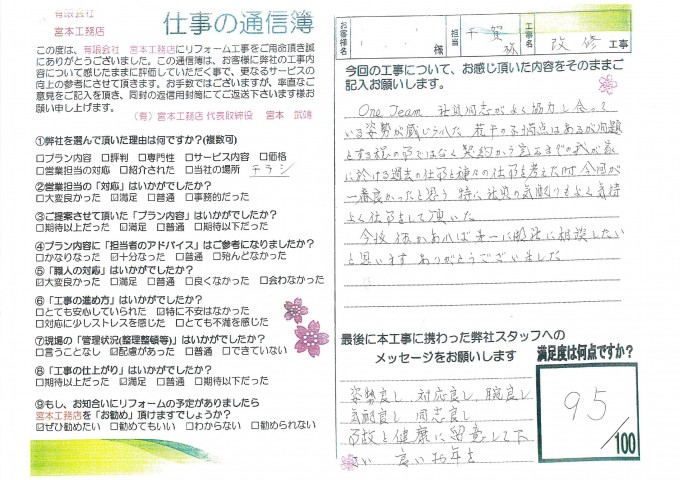 有限会社
宮本工務店
仕事の通信簿
この度は、有限会社 宮本工務店にリフォーム工事をご用命頂き誠
にありがとうございました。この通信簿は、お客様に弊社の工事内
容について感じたままに評価していただく事で、更なるサービスの
向上の参考にさせて頂きます。お手数ではございますが、率直なご
意見をご記入を頂き、同封の返信用封筒にてご返送下さいます様お
願い申し上げます。
(有)宮本工務店 代表取締役 宮本
①弊社を選んで頂いた理由は何ですか?(複数可)
□プラン内容 □評判 □専門性 □サービス内容 □価格
□営業担当の対応 □紹介された □当社の場所 チラシ
②営業担当の「対応」はいかがでしたか?
□大変良かった ☑満足 □普通 □事務的だった
③ご提案させて頂いた「プラン内容」はいかがでしたか?
□期待以上だった ☑満足 □普通 □期待以下だった
④プラン内容に「担当者のアドバイス」はご参考になりましたか?
□かなりなった ☑十分なった □普通 □殆んどなかった
⑤「職人の対応」はいかがでしたか?
☑大変良かった □満足 □普通 □良くなかった □会わなかった
⑥「工事の進め方」はいかがでしたか?
□とても安心していられた ☑特に不安はなかった
□対応に少しストレスを感じた □とても不満を感じた
⑦現場の「管理状況(整理整頓等)」はいかがでしたか?
□言うことなし ☑配慮があった □普通 □できていない
⑧「工事の仕上がり」はいかがでしたか?
□期待以上だった ☑満足 □普通 □期待以下だった
⑨もし、お知合いにリフォームの予定がありましたら
宮本工務店を「お勧め」頂けますでしょうか?
☑ぜひ勧めたい □勧めてもいい □わからない □勧められない
お客様名
様
担当
千賀 様
工事名
改修 工事
今回の工事について、お感じ頂いた内容をそのままご
記入お願いします。
One Team 社員同志がよく協力し合って
いる姿勢が感じられた 若干の不満点はあるが問題
とする程の事ではなく契約から完了までの我が家
に於ける過去の仕事と種々の仕事を考えた時今回が
一番良かったと思う 特に社員の気配りもよく気持
よく仕事をして頂いた
今後何かあれば第一に御社に相談したい
と思います ありがとうございました
最後に本工事に携わった弊社スタッフへの
メッセージをお願いします
姿勢良し 対応良し 腕良し
気配良し 同志良し
事故と健康に留意して下
さい 良いお年を
満足度は何点ですか?
95
/100